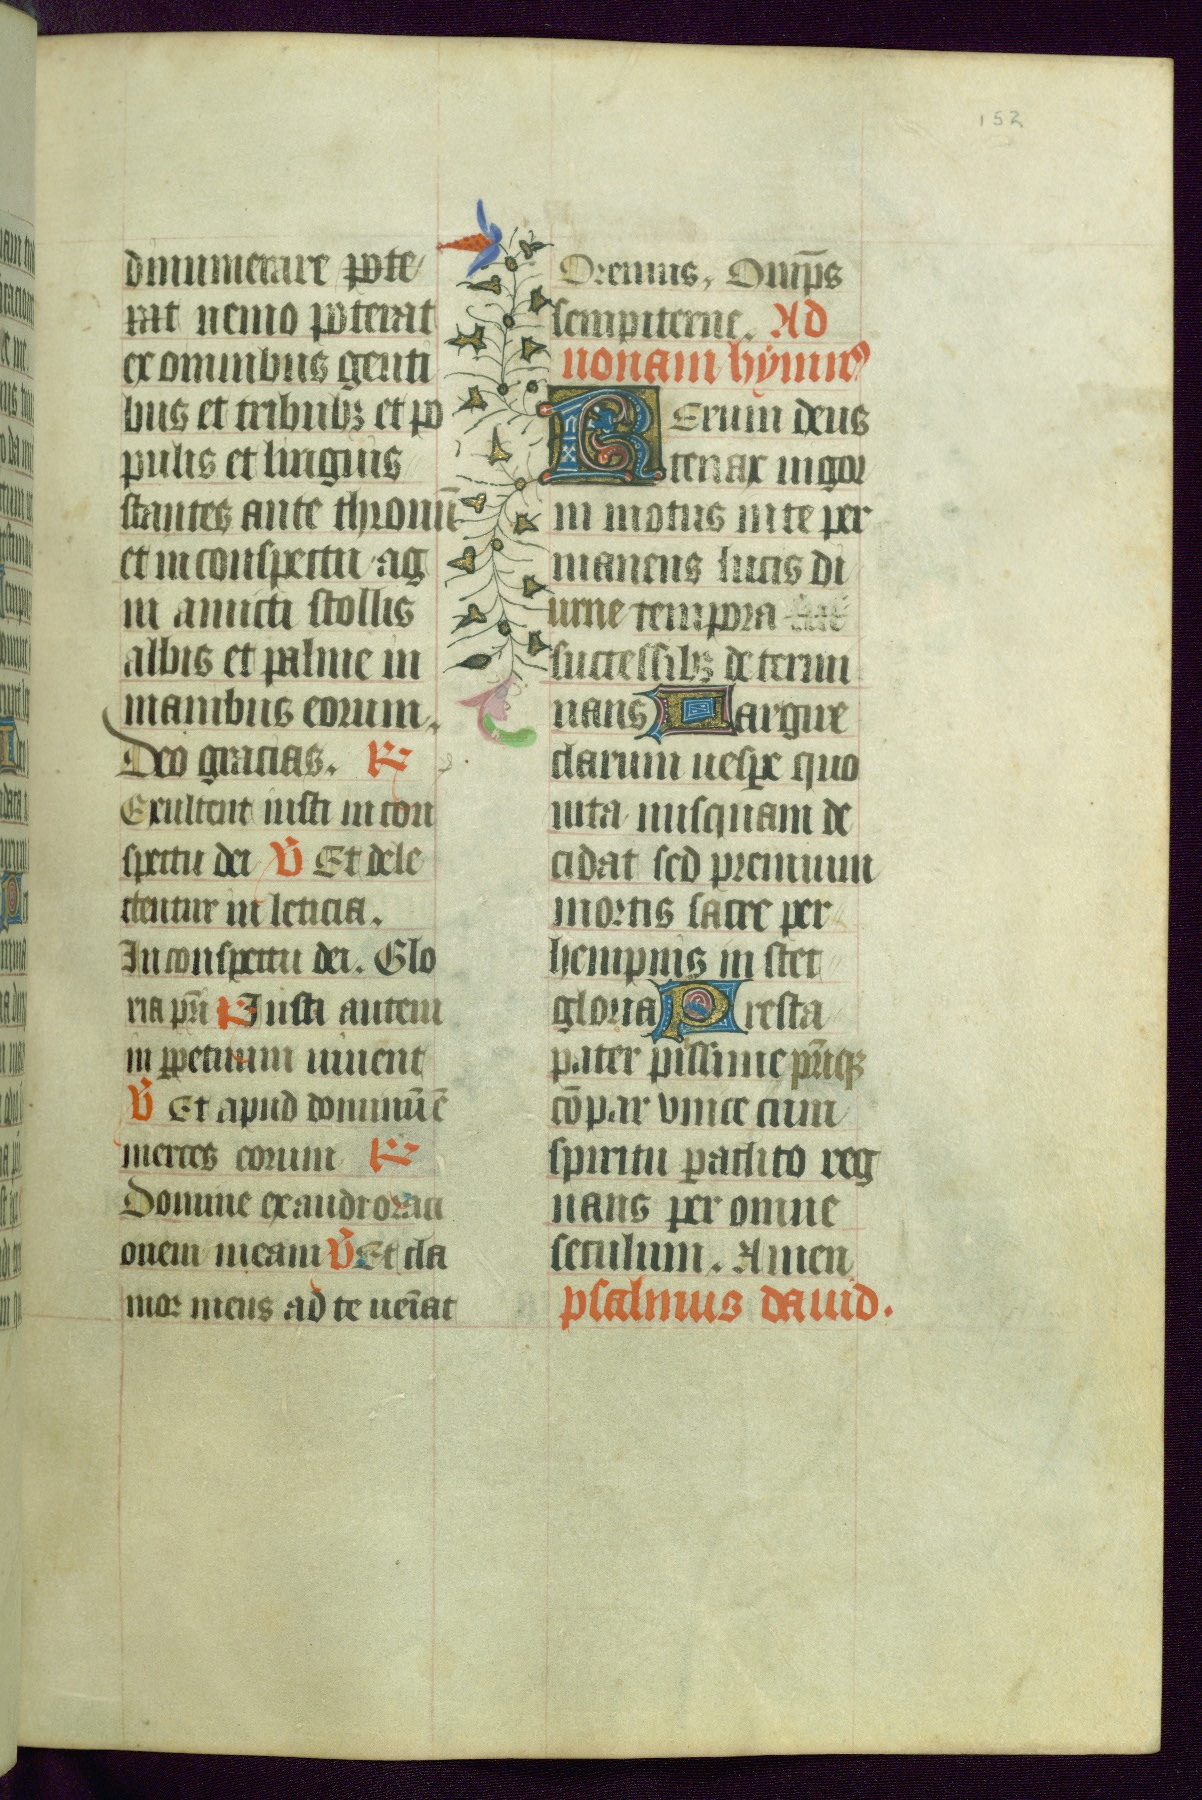 152
dinumerare pote
rat nemo poterat
ex omnibus genti
bus et tribubꝫ et po
pulis et linguis
stantes ante thronū
et in conspectu ag
ni amicti stollis
albis et palme in
manibus eorum.
Deo gracias. R
Exultent iusti in con
spectu dei V Et dele
ctentur in leticia.
In conspectu dei. Glo
ria pr̄i R Iusti autem
in ꝑpetuum uiuent
V Et apud dominū ē
merces eorum R
Domine exaudi oraci
onem meam V Et cla
mor meus ad te ueīat
Oremus, Omp̄s
sempiterne. Ad
nonam hẏmnꝰ
Rerum deus
tenax uigor
in motus in te per
manens lucis di
urne tempora
successibꝫ determi
nans Largire
clarum uespe quo
uita nusquam de
cidat sed premium
mortis sacre per
hempnis in stet
gloria Presta
pater pissime pr̄icꝫ
cōpar vnice cum
spiritu paclito reg
nans per omne
seculum. Amen
psalmus dauid.